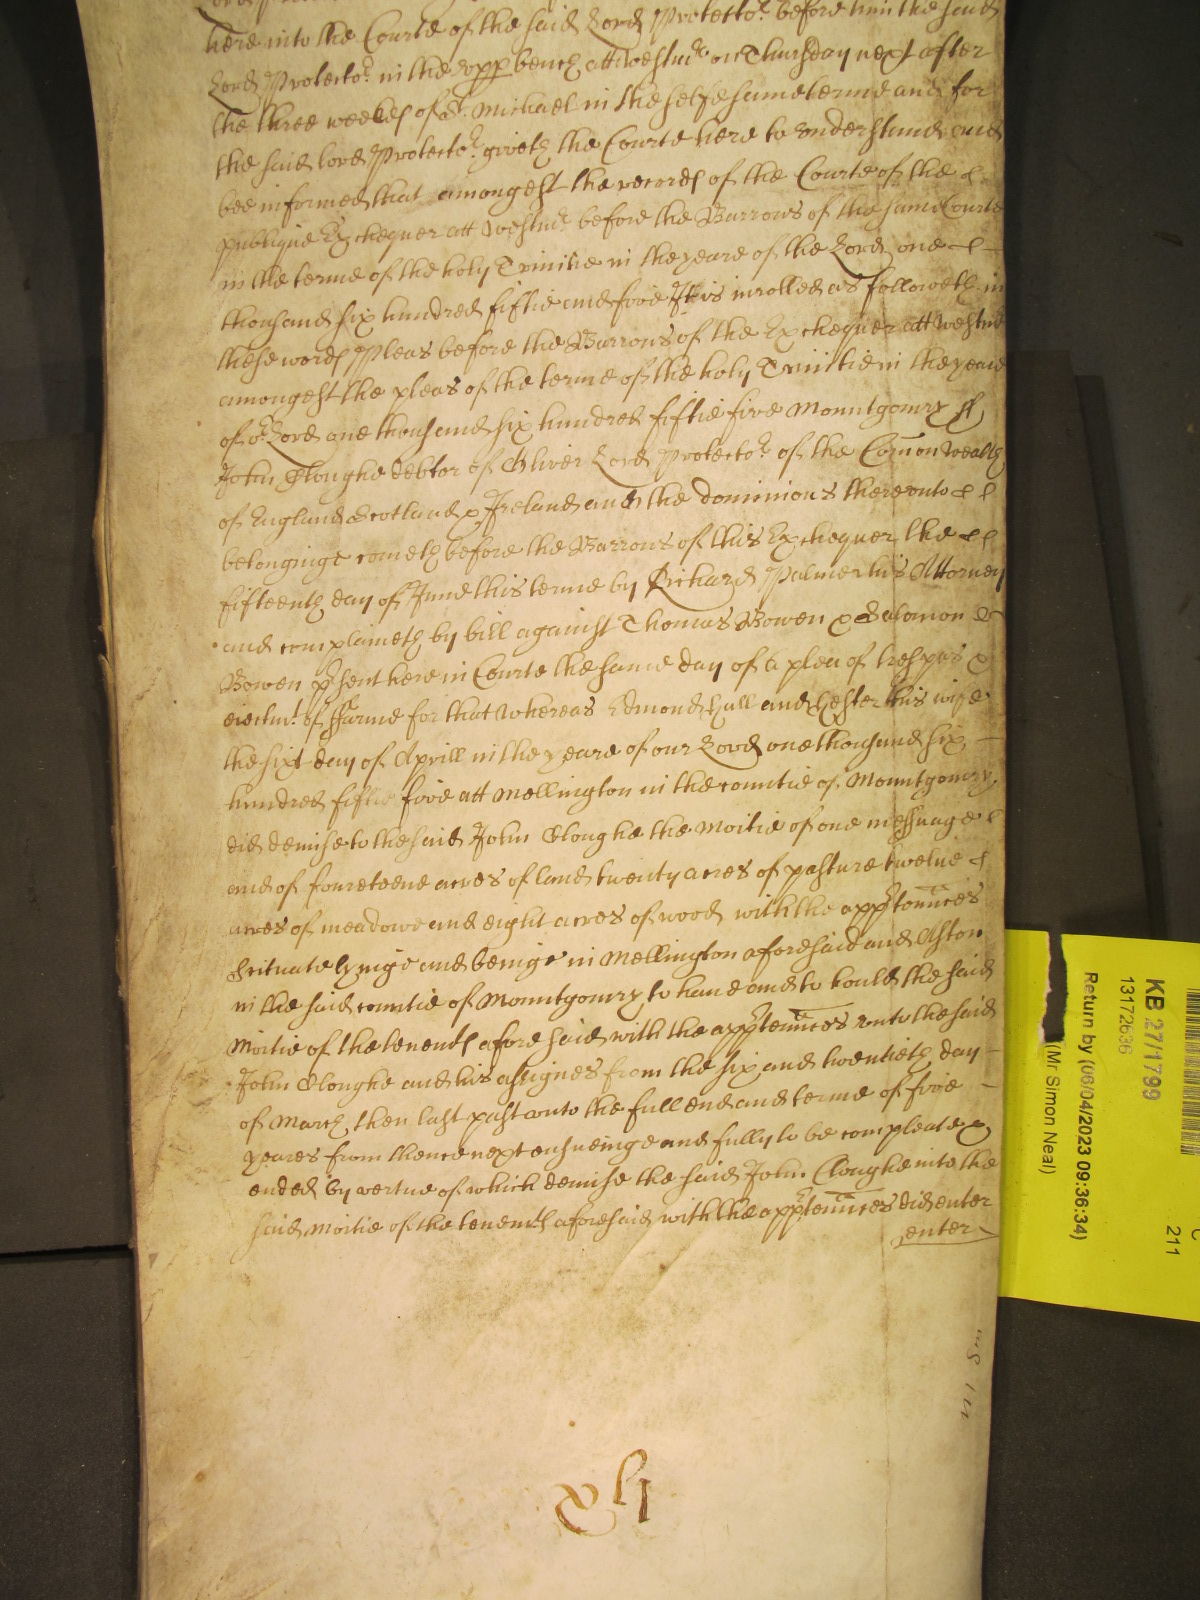 here into the Courte of the said Lord Protector before him the said
Lord Protector in the upp bench att Westmr on Thursday next after
the three weekes of St. Michael in the selfe same terme and for
the said lord Protector giveth the Courte here to understand and
bee informed that amongest the records of the Courte of the
publique Exchequer att Westmr before the Barrons of the same Courte
in the terme of the holy Trinitie in the yeare of the Lord one
thousand six hundred fiftie and five It is inrolled as followeth in
these words Pleas before the Barrons of the Exchequer att Westmr
amongest the pleas of the terme of the holy Trinitie in the yeare
of or Lord one thousand six hundred fiftie five Mountgomry ss
John Cloughe debtor of Oliver Lord Protector of the Comon Wealth
of England Scotland & Ireland and the dominions thereunto
belonginge cometh before the Barrons of this Exchequer the
fifteenth day of June this terme by Richard Palmer his Attorney
and complaineth by bill against Thomas Bowen & Salomon
Bowen psent here in Courte the same day of a plea of trespas &
eiectmt of ffarme for that whereas Edmond Hall and Hester his wife
the sixt day of Aprill in the yeare of our Lord one thousand six
hundred fiftie five att Mellington in the countie of Mountgomry
did demise to the said John Cloughe the Moitie of one messuage
and of foureteene acres of land twenty acres of pasture twelve
acres of meadowe and eight acres of wood with the apptennces
scituate lyinge and beinge in Mellington aforesaid and Aston
in the said countie of Mountgomry to have and to hould the said
Moitie of the tenemts aforesaid with the apptennces unto the said
John Cloughe and his assignes from the six and twentieth day
of March then last past unto the full end and terme of five
yeares from thence next ensueinge and fully to be compleate &
ended by vertue of which demise the said John Cloughe into the
said Moitie of the tenemts aforesaid with the apptennces did enter
enter
KB 27/1799
13172636
Return by (06/04/2023 09:36:34)
(Mr Simon Neal)
211